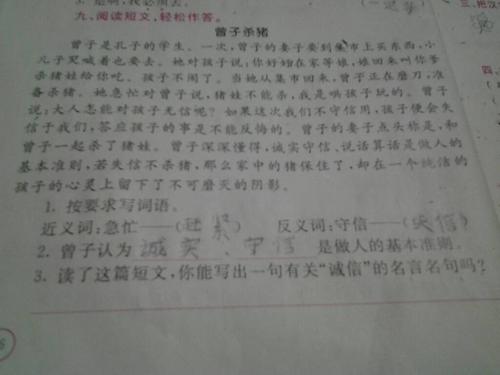 九、阅读短文,轻松作答。
曾子杀猪
曾子是孔子的学生。一次,曾子的妻子要到集市上买东西,小
儿子哭喊着也要去。她对孩子说:你好好在家等娘,娘回来叫你爹
杀猪娃给你吃。孩子不闹了。当她从集市回来,曾子正在磨刀,准
备杀猪。她急忙对曾子说,猪娃不能杀,我是哄孩子玩的。曾子
说:大人怎能对孩子无信呢?如果这次我们不守信用,孩子便会失
信于我们,答应孩子的事是不能反悔的。曾子的妻子点头称是,和
曾子一起杀了猪娃。曾子深深懂得,诚实守信,说话算话是做人的
基本准则,若失信不杀猪,那么家中的猪保住了,却在一个纯洁的
孩子的心灵上留下了不可磨灭的阴影。
1. 按要求写词语。
近义词:急忙——(赶紧) 反义词:守信——(失信)
2. 曾子认为 诚实、守信 是做人的基本准则。
3. 读了这篇短文,你能写出一句有关“诚信”的名言名句吗?
三、把汉
四、